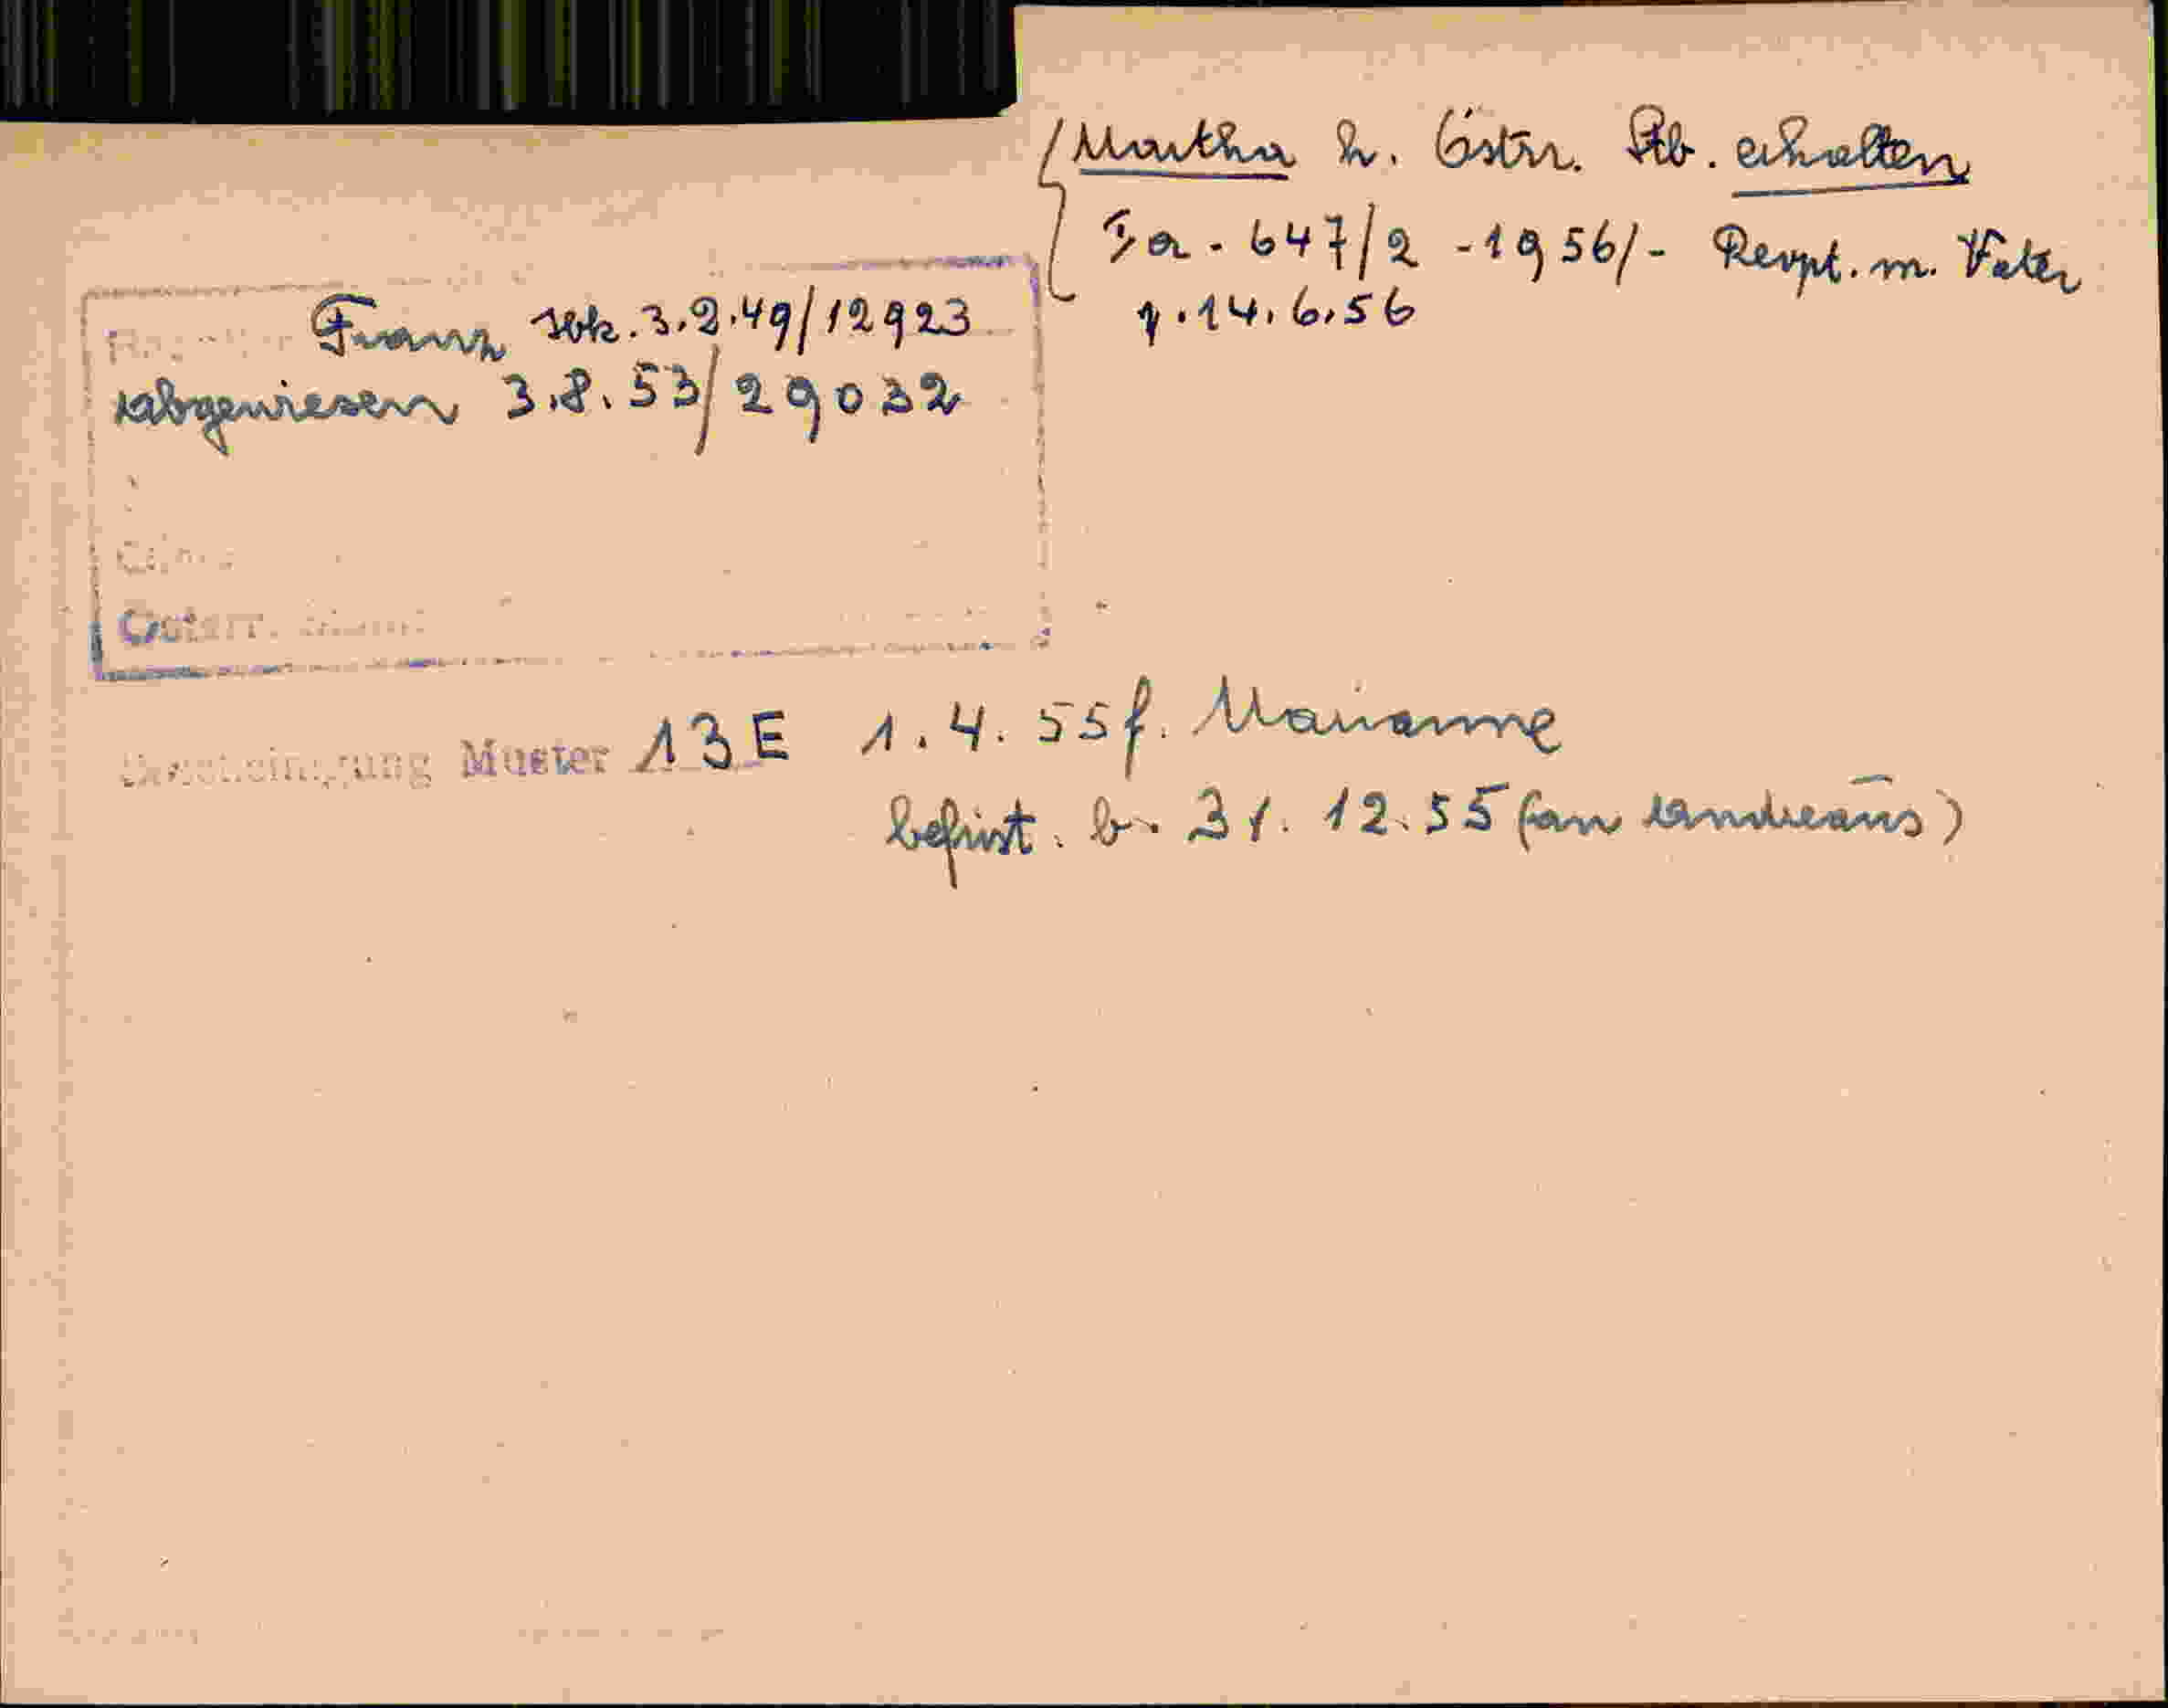 Martha h. Östrr. Stb. erhalten
Ia - 647/2 - 1956/- Revpt. m. Vater
v. 14. 6. 56
Franz Wk. 3.2.49/12923
abgewiesen 3.8.53/29032
Österr.
Bescheinigung Muster 13E 1.4.55 f. Marianne
befrist. b. 31.12.55 (an Landeaus)